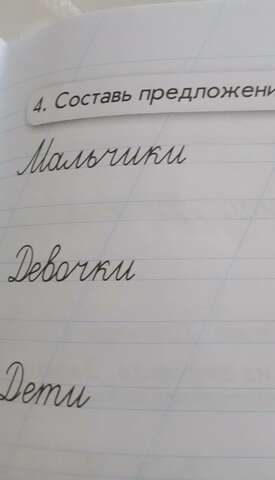 4. Составь предложени
Мальчики
Девочки
Дети